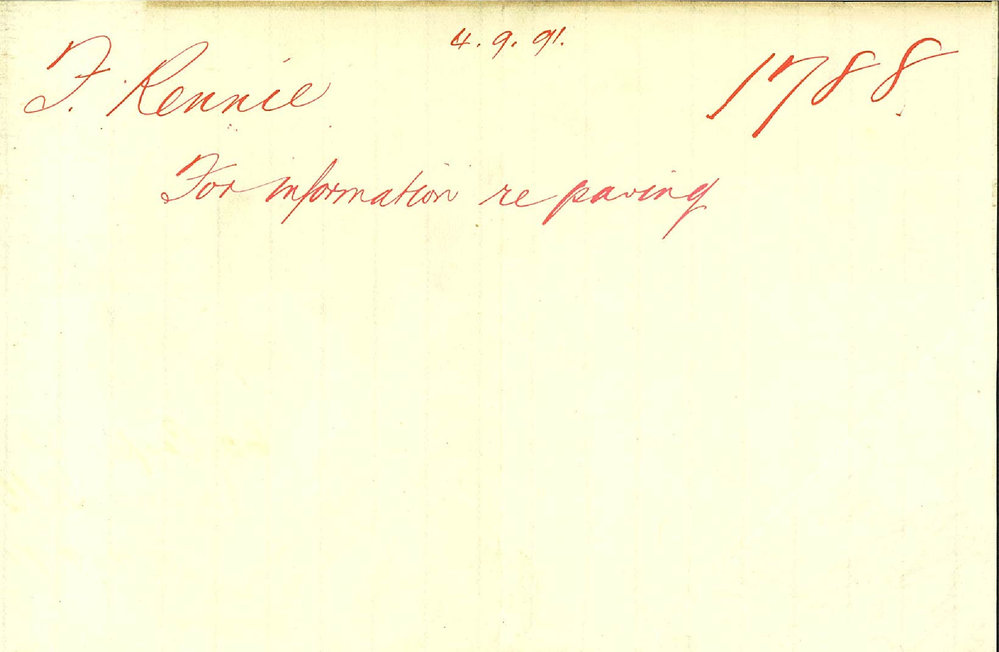 4. 9. 91.
F. Rennie 1788
For information re paving